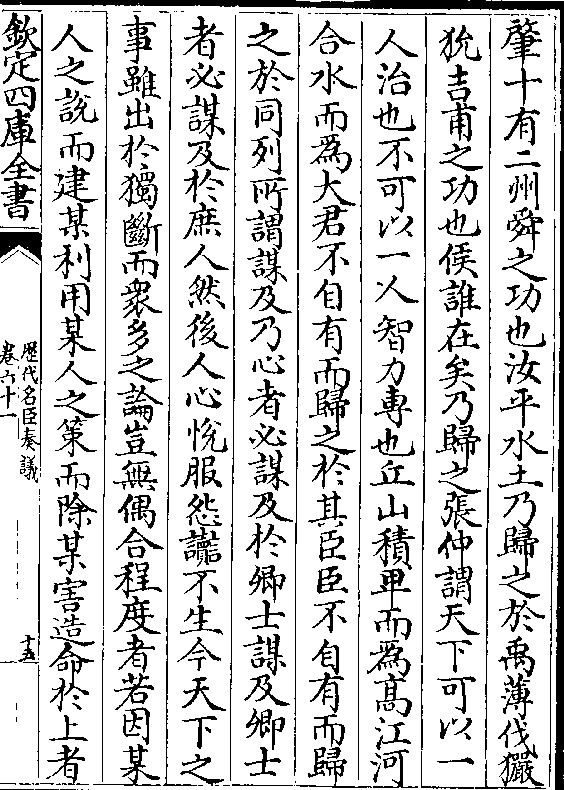 肇十有二州舜之功也汝平水土乃歸之於禹薄伐玁
狁吉甫之功也侯誰在矣乃歸之張仲謂天下可以一
人治也不可以一人智力專也丘山積卑而為髙江河
合水而為大君不自有而歸之於其臣臣不自有而歸
之於同列所謂謀及乃心者必謀及於卿士謀及卿士
者必謀及於庶人然後人心悅服怨讟不生今天下之
事雖出於獨斷而衆多之論豈無偶合程度者若因某
人之說而建某利用某人之策而除某害造命於上者
欽定四庫全書
歴代名臣奏議
卷六十一
十五